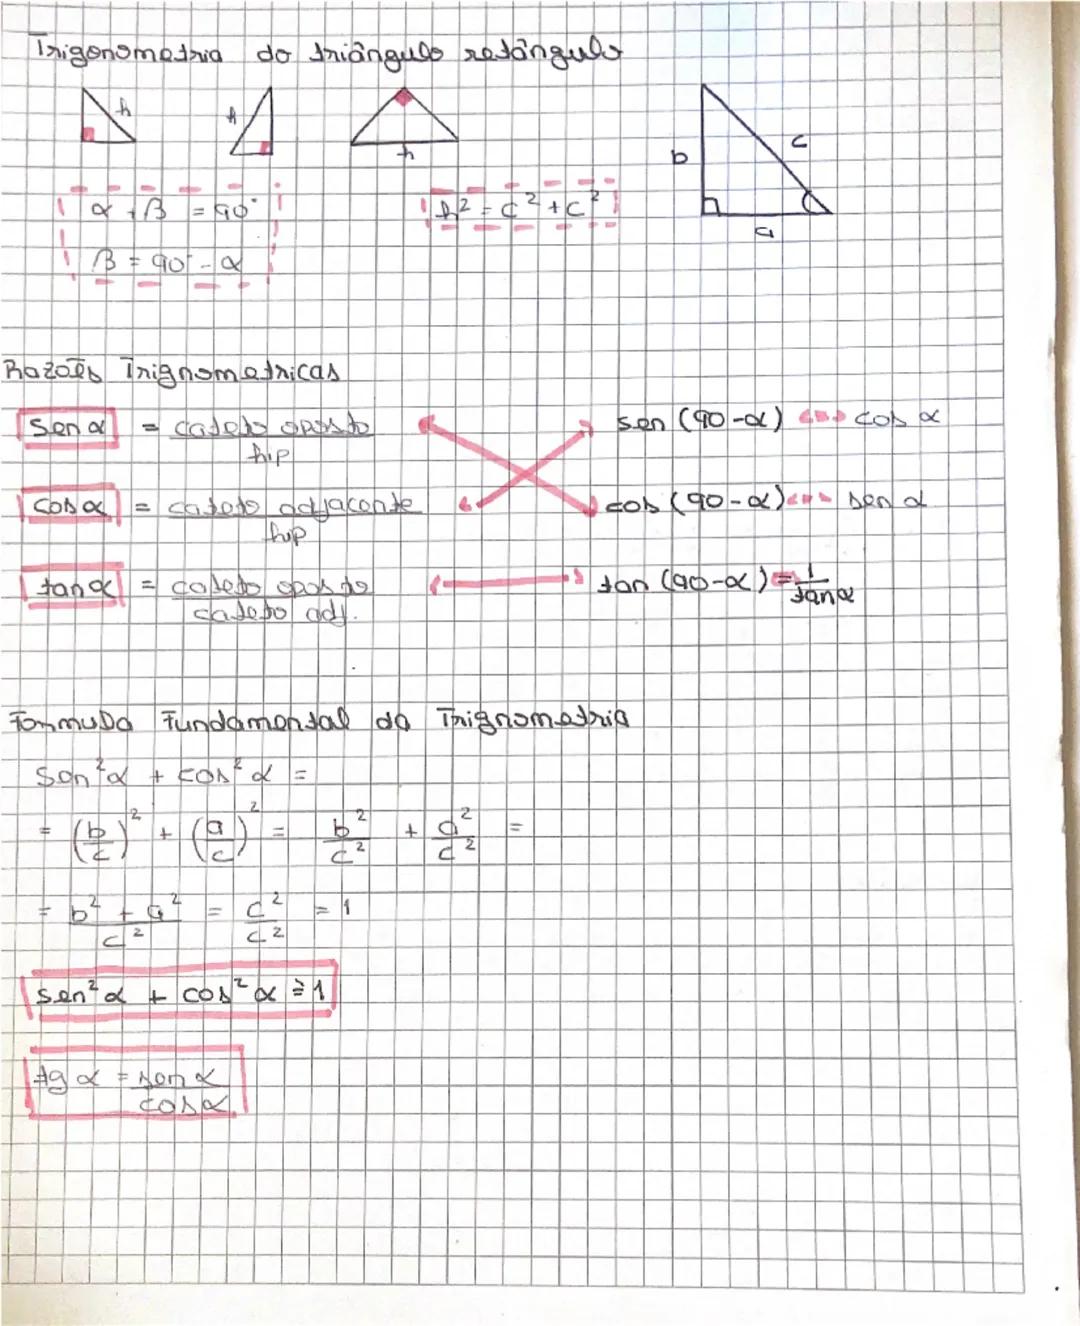 Trigonometria do triângulo retângulo
h
h
h
b
c
a
α + β = 90°
β = 90° - α
h² = c² + c²
Razões Trignometricas
sen α = cateto oposto / hip
sen (90-α) <=> cos α
cos α = cateto adjacente / hip
cos (90-α) <=> sen α
tan α = cateto oposto / cateto adj.
tan (90-α) = 1 / tan α
Formula Fundamental da Trignometria
Sen²α + cos²α =
= (b/c)² + (a/c)² = b²/c² + a²/c² =
= b² + a² / c² = c²/c² = 1
sen²α + cos²α = 1
tg α = sen α / cos α